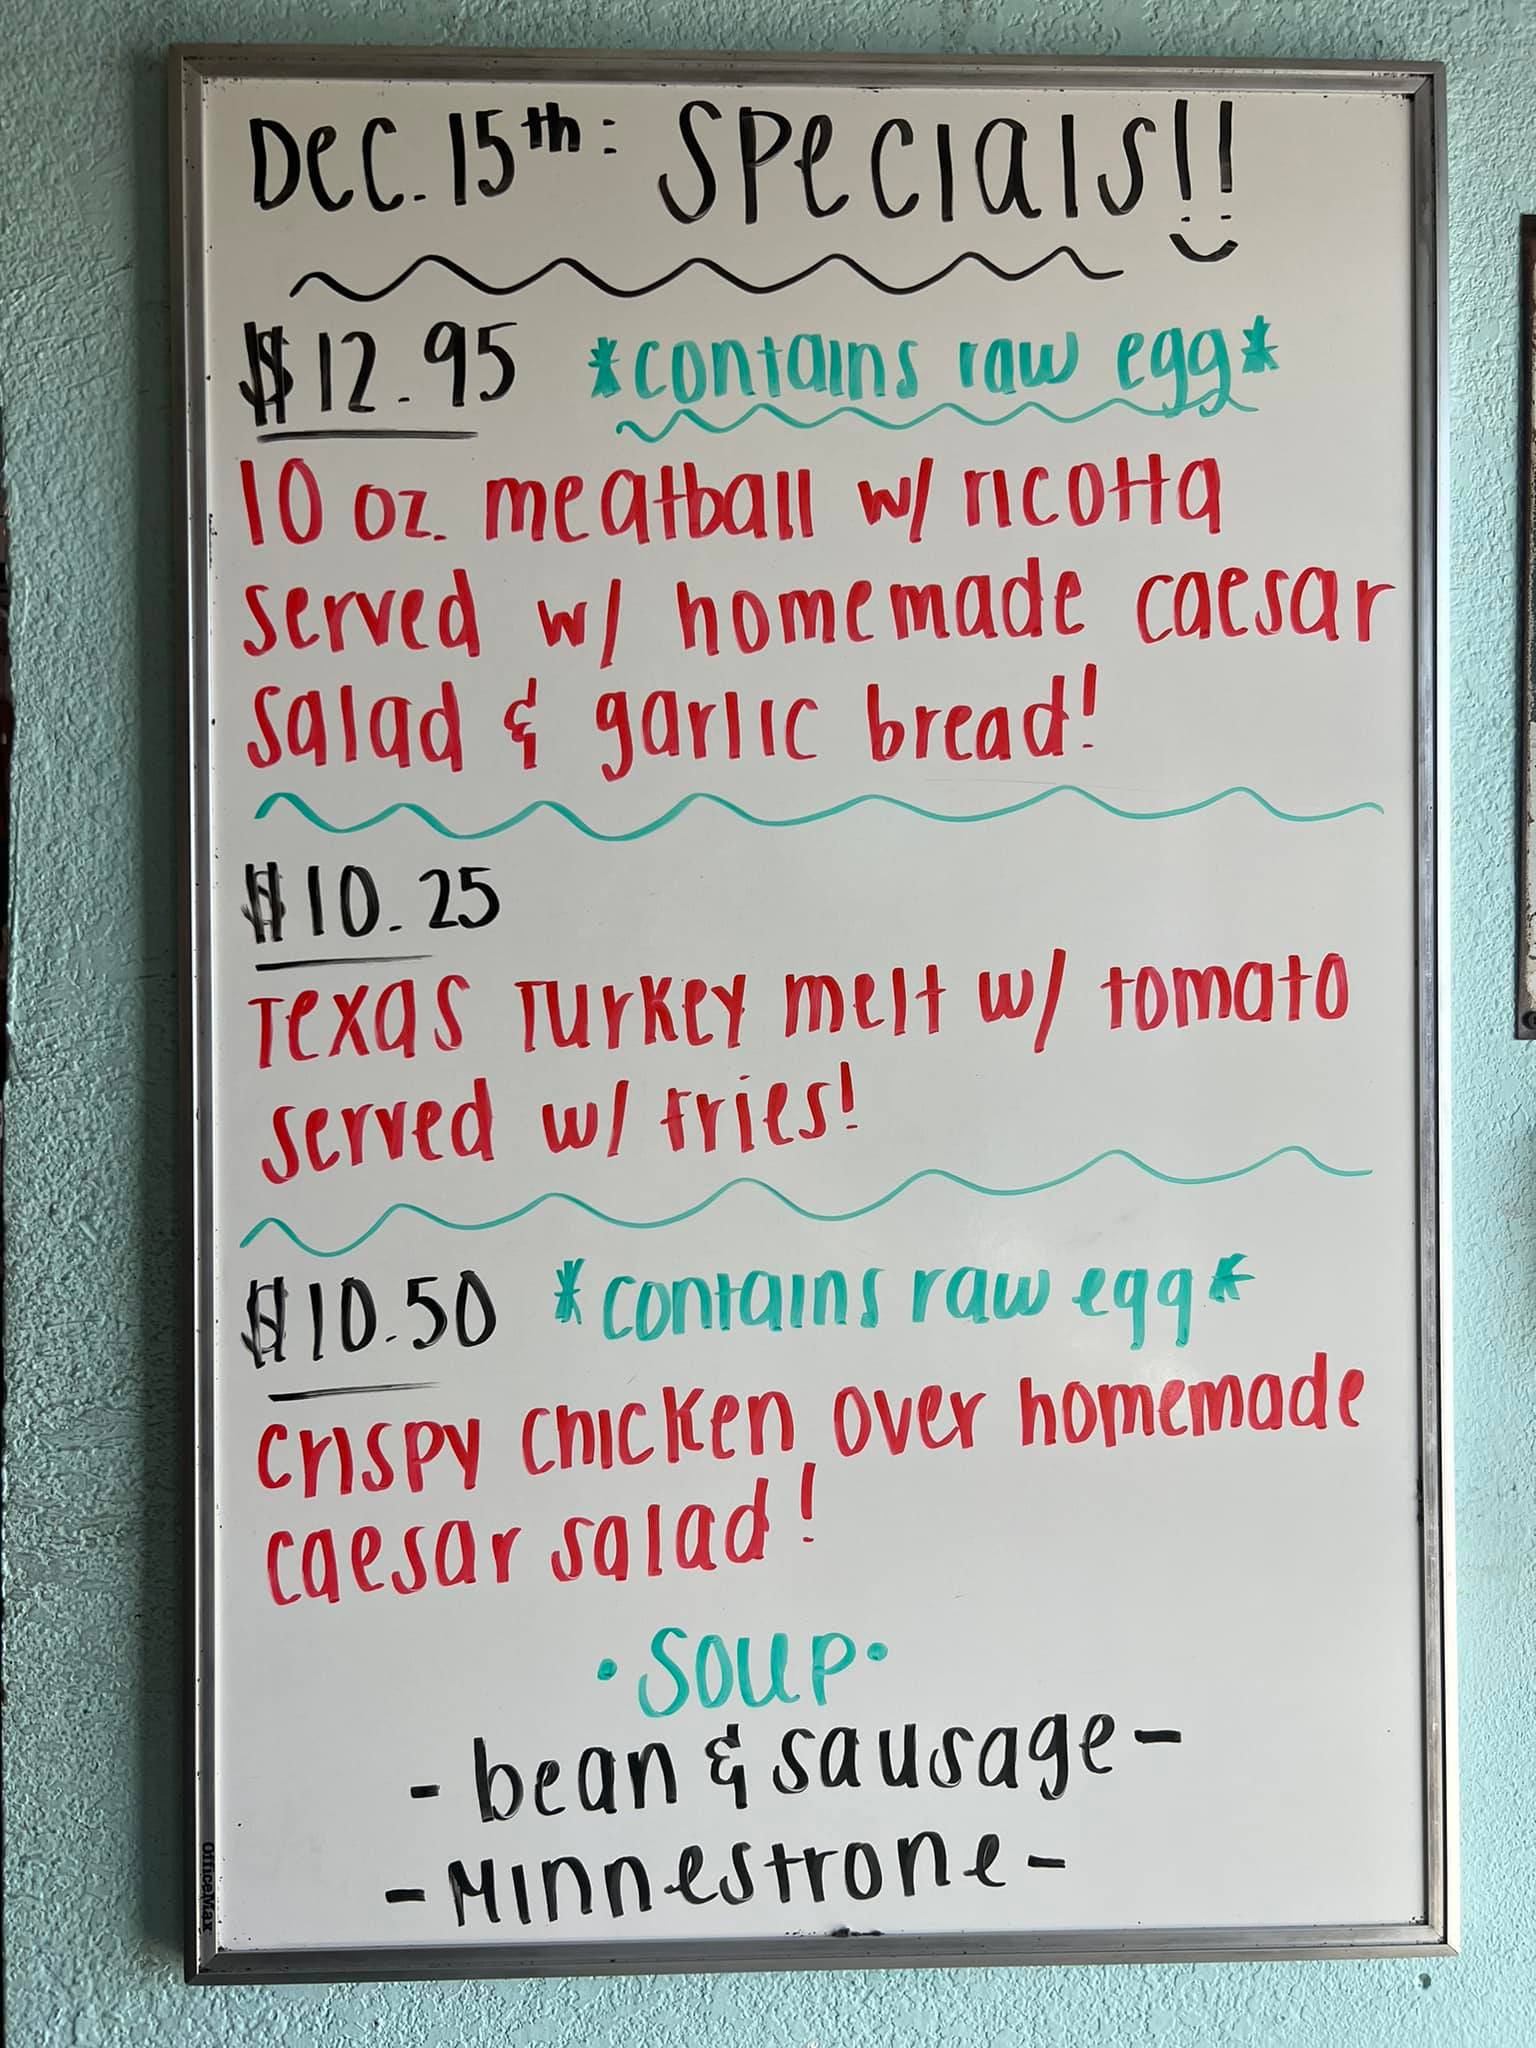 Dec. 15th: Specials!!
$12.95 *contains raw egg*
10 oz. meatball w/ ricotta
served w/ homemade caesar
salad & garlic bread!
$10.25
Texas Turkey melt w/ tomato
served w/ fries!
$10.50 *contains raw egg*
crispy chicken over homemade
caesar salad!
• Soup •
- bean & sausage -
- Minnestrone -
OfficeMax